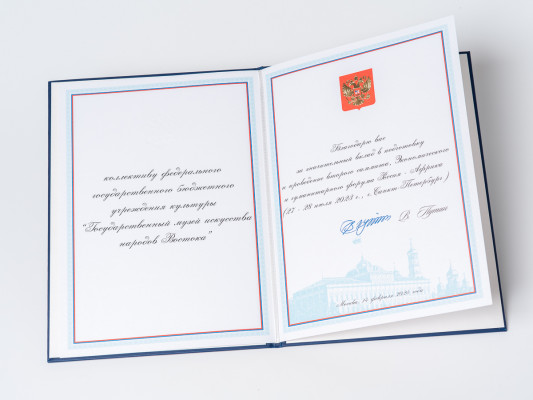 коллективу федерального
государственного бюджетного
учреждения культуры
"Государственный музей искусства
народов Востока"
Благодарю вас
за значительный вклад в подготовку
и проведение второго саммита, Экономического
и гуманитарного форума Россия - Африка
(27 - 28 июля 2023 г., г. Санкт-Петербург)
В. Путин
Москва, февраля года